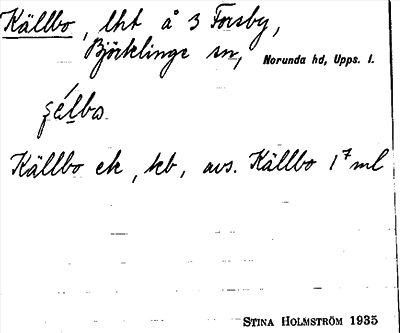 Källbo, lht å 3 Forsby,
Björklinge sn, Norunda hd, Upps. l.
Källbo ek, kb, avs. Källbo 1⁷ ml
STINA HOLMSTRÖM 1935